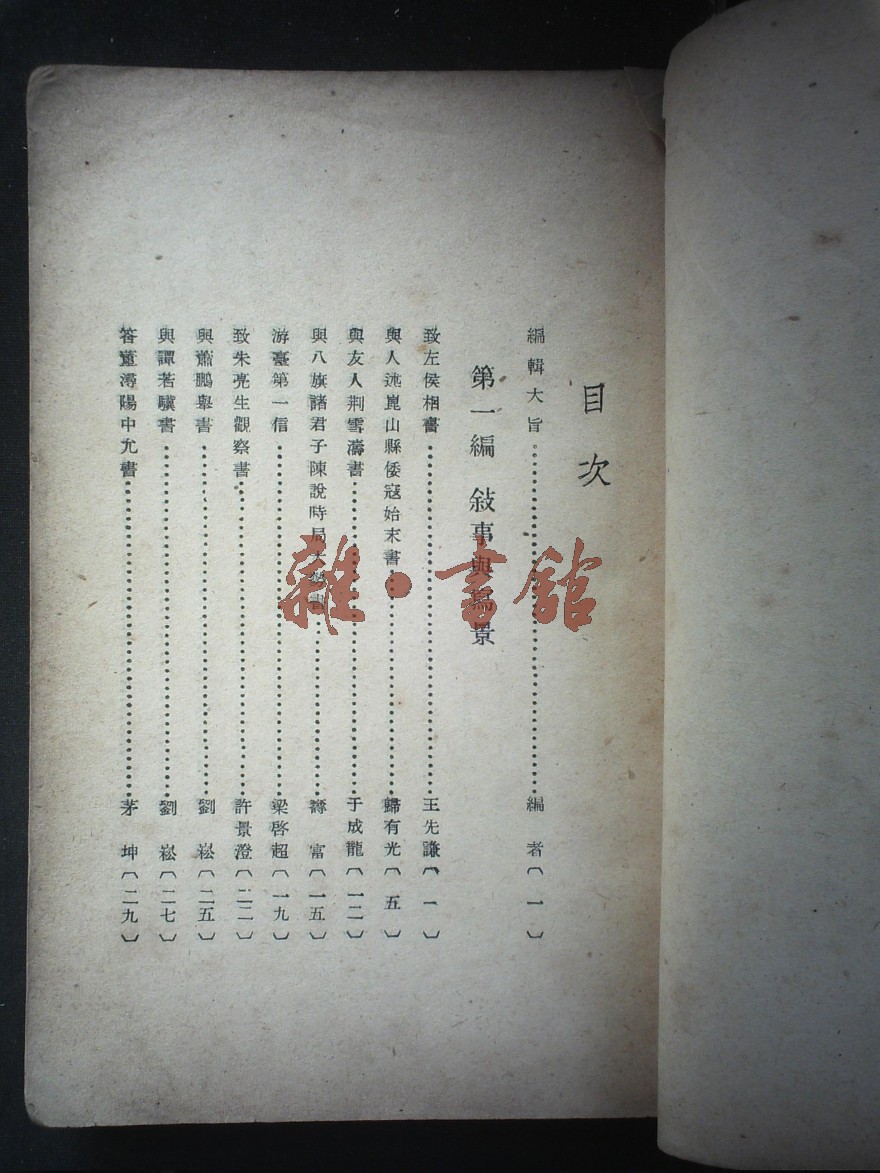 目次
編輯大旨………編者〔一〕
第一編 敍事與寫景
致左侯相書………王先謙〔一〕
與人述崑山縣倭寇始末書………歸有光〔五〕
與友人荆雪濤書………于成龍〔一二〕
與八旗諸君子陳說時局大勢書………壽富〔一五〕
游臺第一信………梁啓超〔一九〕
致朱亮生觀察書………許景澄〔二二〕
與蕭鵬舉書………劉崧〔二五〕
與譚若驥書………劉崧〔二七〕
答董潯陽中允書………茅坤〔二九〕
雜·書館